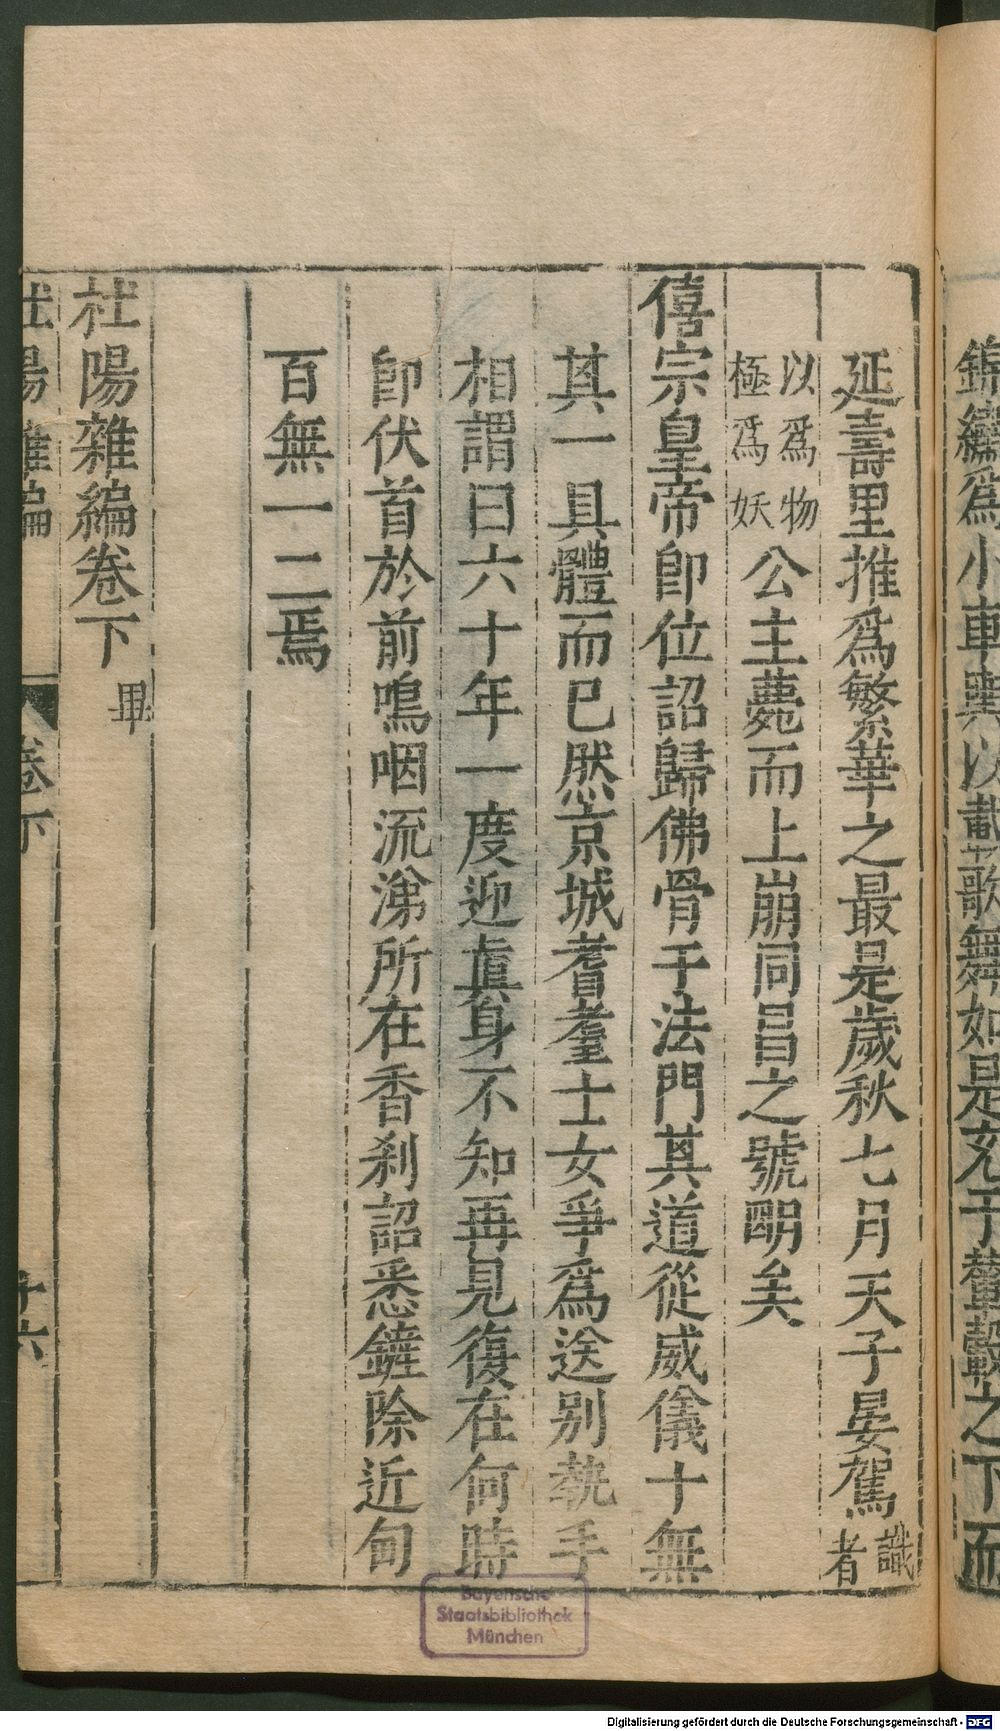 錦繡爲小車輿以載歌舞如是充于輦轂之下而
延壽里推爲繁華之最是歲秋七月天子晏駕識者
以爲物極爲妖公主薨而上崩同昌之號明矣
僖宗皇帝卽位詔歸佛骨于法門其道從威儀十無
其一具體而已然京城耆耋士女爭爲送别執手
相謂曰六十年一度迎眞身不知再見復在何時
卽伏首於前嗚咽流涕所在香刹詔悉鏟除近甸
百無一二焉
杜陽雜編卷下 畢
杜陽雜編 卷下 十六
Bayerische
Staatsbibliothek
München
Digitalisierung gefördert durch die Deutsche Forschungsgemeinschaft - DFG